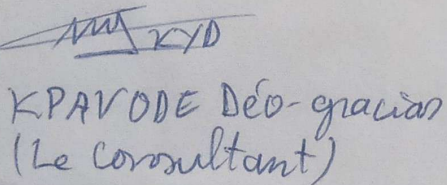 KYD
KPAVODE Déo-gracias
(Le Consultant)